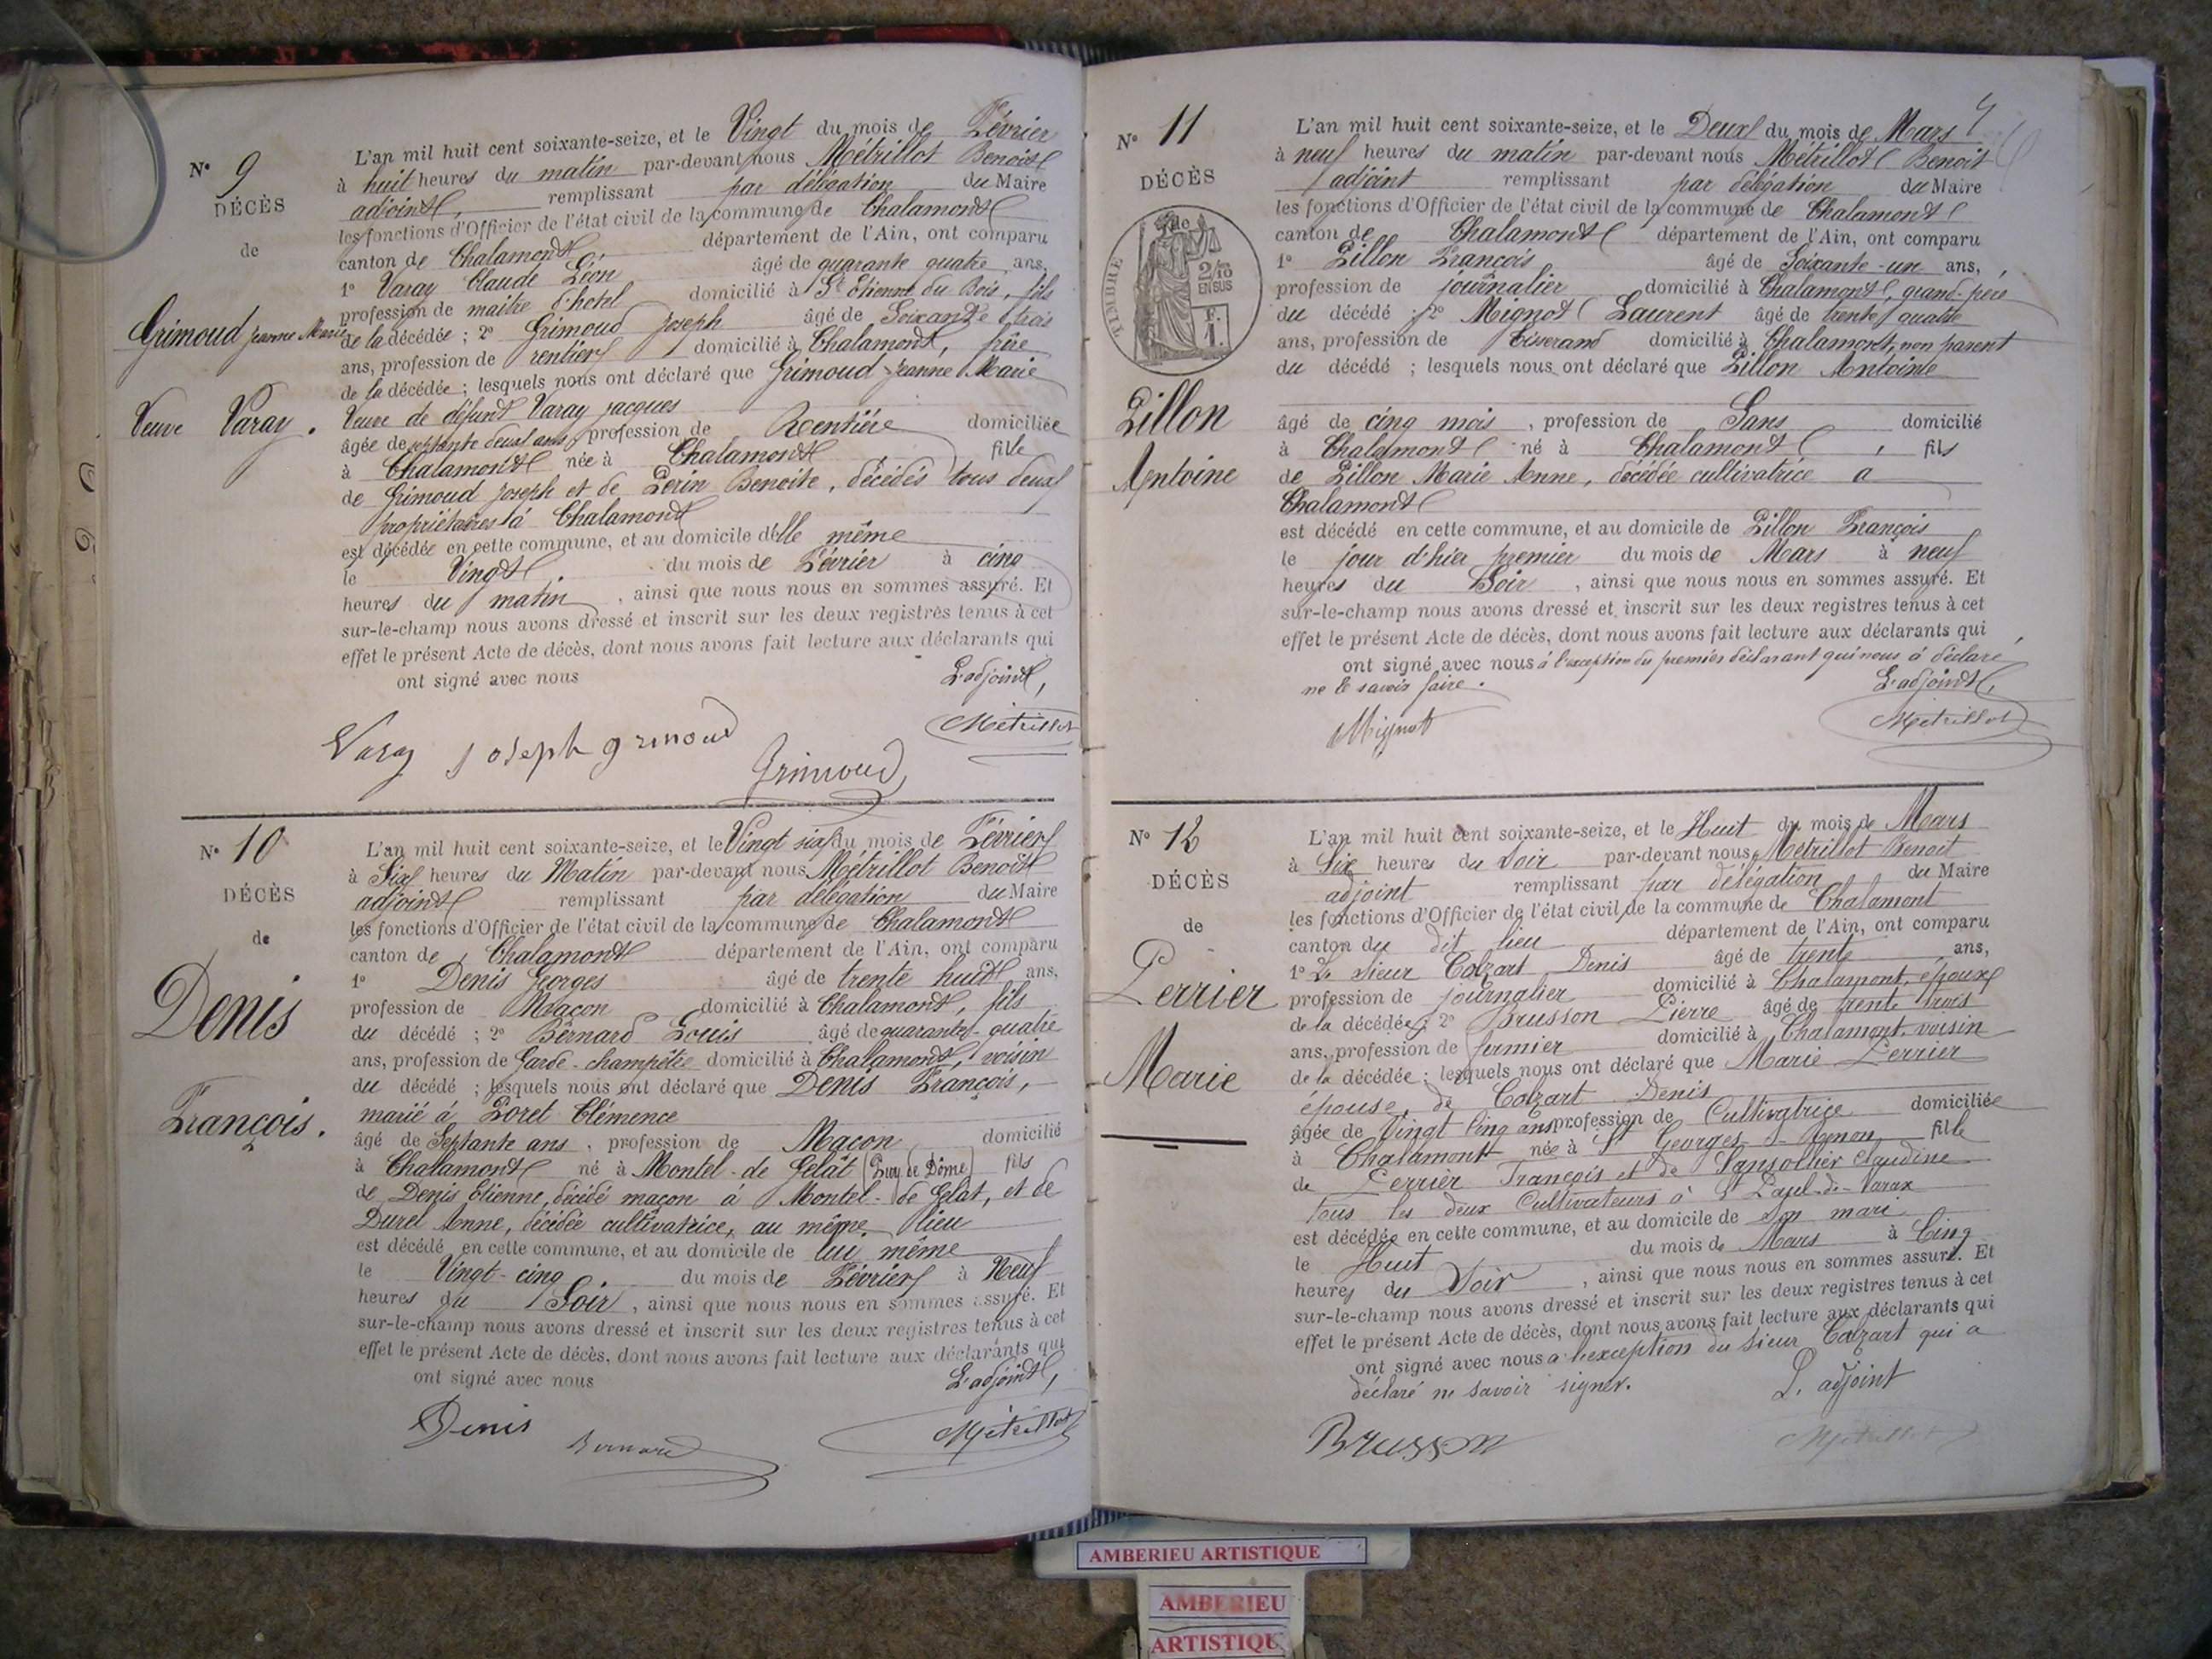 N° 9
DÉCÈS
de
Grimoud Jeanne Marie
Veuve Varay.
L'an mil huit cent soixante-seize, et le Vingt du mois de Février
à huit heures du matin par-devant nous Métrillot Benoit
adjoint, remplissant par délégation du Maire
les fonctions d'Officier de l'état civil de la commune de Chalamont
canton de Chalamont département de l'Ain, ont comparu
1° Varay Claude Léon âgé de quarante quatre ans,
profession de maitre d'hotel domicilié à St Etienne du Bois, fils
de la décédée ; 2° Grimoud Joseph âgé de Soixante trois
ans, profession de rentier domicilié à Chalamont, frère
de la décédée ; lesquels nous ont déclaré que Grimoud Jeanne Marie
Veuve de défunt Varay jacques
âgée de septante deux ans, profession de Rentière domiciliée
à Chalamont née à Chalamont fille
de Grimoud Joseph et de Perin Benoite, décédés tous deux
propriétaires à Chalamont
est décédée en cette commune, et au domicile d'elle même
le Vingt du mois de Février à cinq
heures du matin, ainsi que nous nous en sommes assuré. Et
sur-le-champ nous avons dressé et inscrit sur les deux registres tenus à cet
effet le présent Acte de décès, dont nous avons fait lecture aux déclarants qui
ont signé avec nous L'adjoint,
Varay Joseph grimoud Métrillot
Grimoud
N° 10
DÉCÈS
de
Denis
François.
L'an mil huit cent soixante-seize, et le Vingt six du mois de Février
à Six heures du Matin par-devant nous Métrillot Benoit
adjoint remplissant par délégation du Maire
les fonctions d'Officier de l'état civil de la commune de Chalamont
canton de Chalamont département de l'Ain, ont comparu
1° Denis Georges âgé de trente huit ans,
profession de Maçon domicilié à Chalamont, fils
du décédé ; 2° Bernard Louis âgé de quarante-quatre
ans, profession de Garde-champêtre domicilié à Chalamont, voisin
du décédé ; lesquels nous ont déclaré que Denis François,
marié à Poret Clémence
âgé de Septante ans, profession de Maçon domicilié
à Chalamont né à Montel-de Gelat (Puy de Dôme) fils
de Denis Etienne, décédé maçon à Montel-de Gelat, et de
Durel Anne, décédée cultivatrice, au même lieu
est décédé en cette commune, et au domicile de lui même
le Vingt-cinq du mois de Février à Neuf
heures du Soir, ainsi que nous nous en sommes assuré. Et
sur-le-champ nous avons dressé et inscrit sur les deux registres tenus à cet
effet le présent Acte de décès, dont nous avons fait lecture aux déclarants qui
ont signé avec nous L'adjoint,
Denis Bernard Métrillot
N° 11
DÉCÈS
de
TIMBRE
2/10
EN SUS
F.
1.
Pillon
Antoine
L'an mil huit cent soixante-seize, et le Deux du mois de Mars
à neuf heures du matin par-devant nous Métrillot Benoit
adjoint remplissant par délégation du Maire
les fonctions d'Officier de l'état civil de la commune de Chalamont
canton de Chalamont département de l'Ain, ont comparu
1° Pillon François âgé de Soixante-un ans,
profession de journalier domicilié à Chalamont, grand-père
du décédé ; 2° Mignot Laurent âgé de trente quatre
ans, profession de Tisserand domicilié à Chalamont, non parent
du décédé ; lesquels nous ont déclaré que Pillon Antoine
âgé de cinq mois, profession de Sans domicilié
à Chalamont né à Chalamont, fils
de Pillon Marie Anne, décédée cultivatrice à
Chalamont
est décédé en cette commune, et au domicile de Pillon François
le jour d'hier premier du mois de Mars à neuf
heures du Soir, ainsi que nous nous en sommes assuré. Et
sur-le-champ nous avons dressé et inscrit sur les deux registres tenus à cet
effet le présent Acte de décès, dont nous avons fait lecture aux déclarants qui
ont signé avec nous à l'exception du premier déclarant qui nous à déclaré
ne le savoir faire. L'adjoint,
Mignot Métrillot
N° 12
DÉCÈS
de
Perrier
Marie
L'an mil huit cent soixante-seize, et le Huit du mois de Mars
à Six heures du soir par-devant nous, Métrillot Benoit
adjoint remplissant par délégation du Maire
les fonctions d'Officier de l'état civil de la commune de Chalamont
canton du dit lieu département de l'Ain, ont comparu
1° Le sieur Colzart Denis âgé de trente ans,
profession de journalier domicilié à Chalamont, époux
de la décédée ; 2° Brusson Pierre âgé de trente trois
ans, profession de fermier domicilié à Chalamont, voisin
de la décédée ; lesquels nous ont déclaré que Marie Perrier
épouse de Colzart Denis
âgée de Vingt Cinq ans profession de Cultivatrice domiciliée
à Chalamont née à St Georges-Renon fille
de Perrier François et de Claudine
tous les deux Cultivateurs à St Paul-de-Varax
est décédée en cette commune, et au domicile de son mari
le Huit du mois de Mars à Cinq
heures du Soir, ainsi que nous nous en sommes assuré. Et
sur-le-champ nous avons dressé et inscrit sur les deux registres tenus à cet
effet le présent Acte de décès, dont nous avons fait lecture aux déclarants qui
ont signé avec nous à l'exception du sieur Colzart qui a
déclaré ne savoir signer. L'adjoint
Brusson Métrillot
AMBERIEU ARTISTIQUE
AMBERIEU
ARTISTIQUE